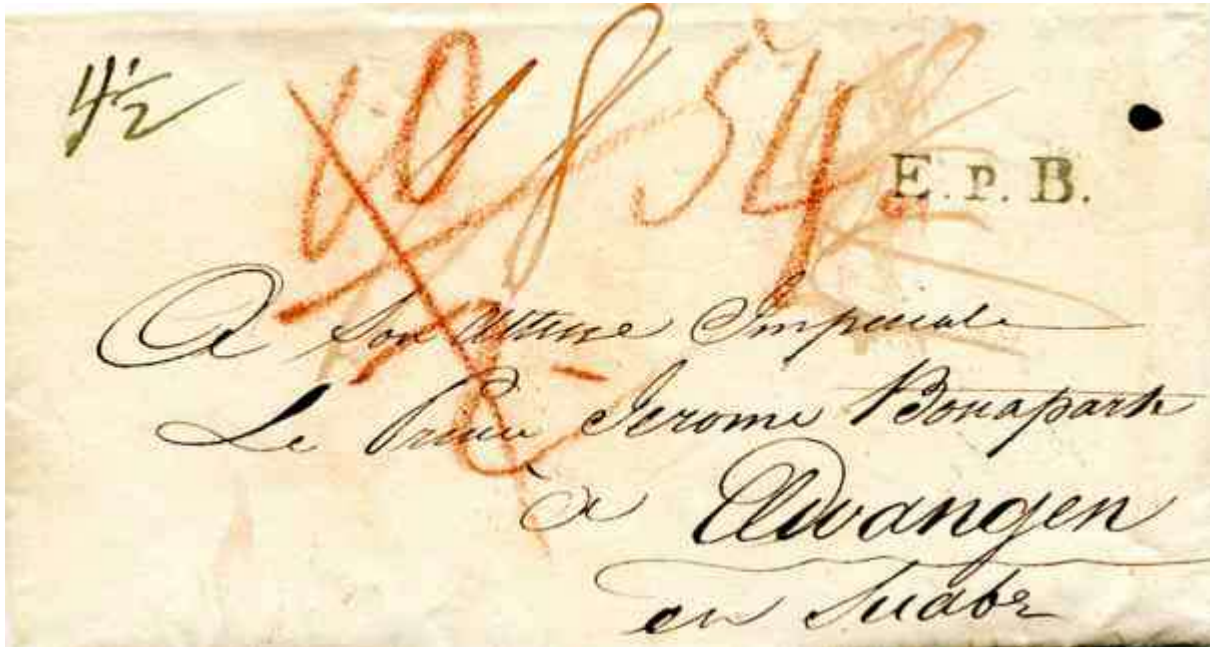 4½ 54
E.P.B.
A Son Altesse Imperiale
Le Prince Jerome Bonaparte
a Elwangen
en Suabe